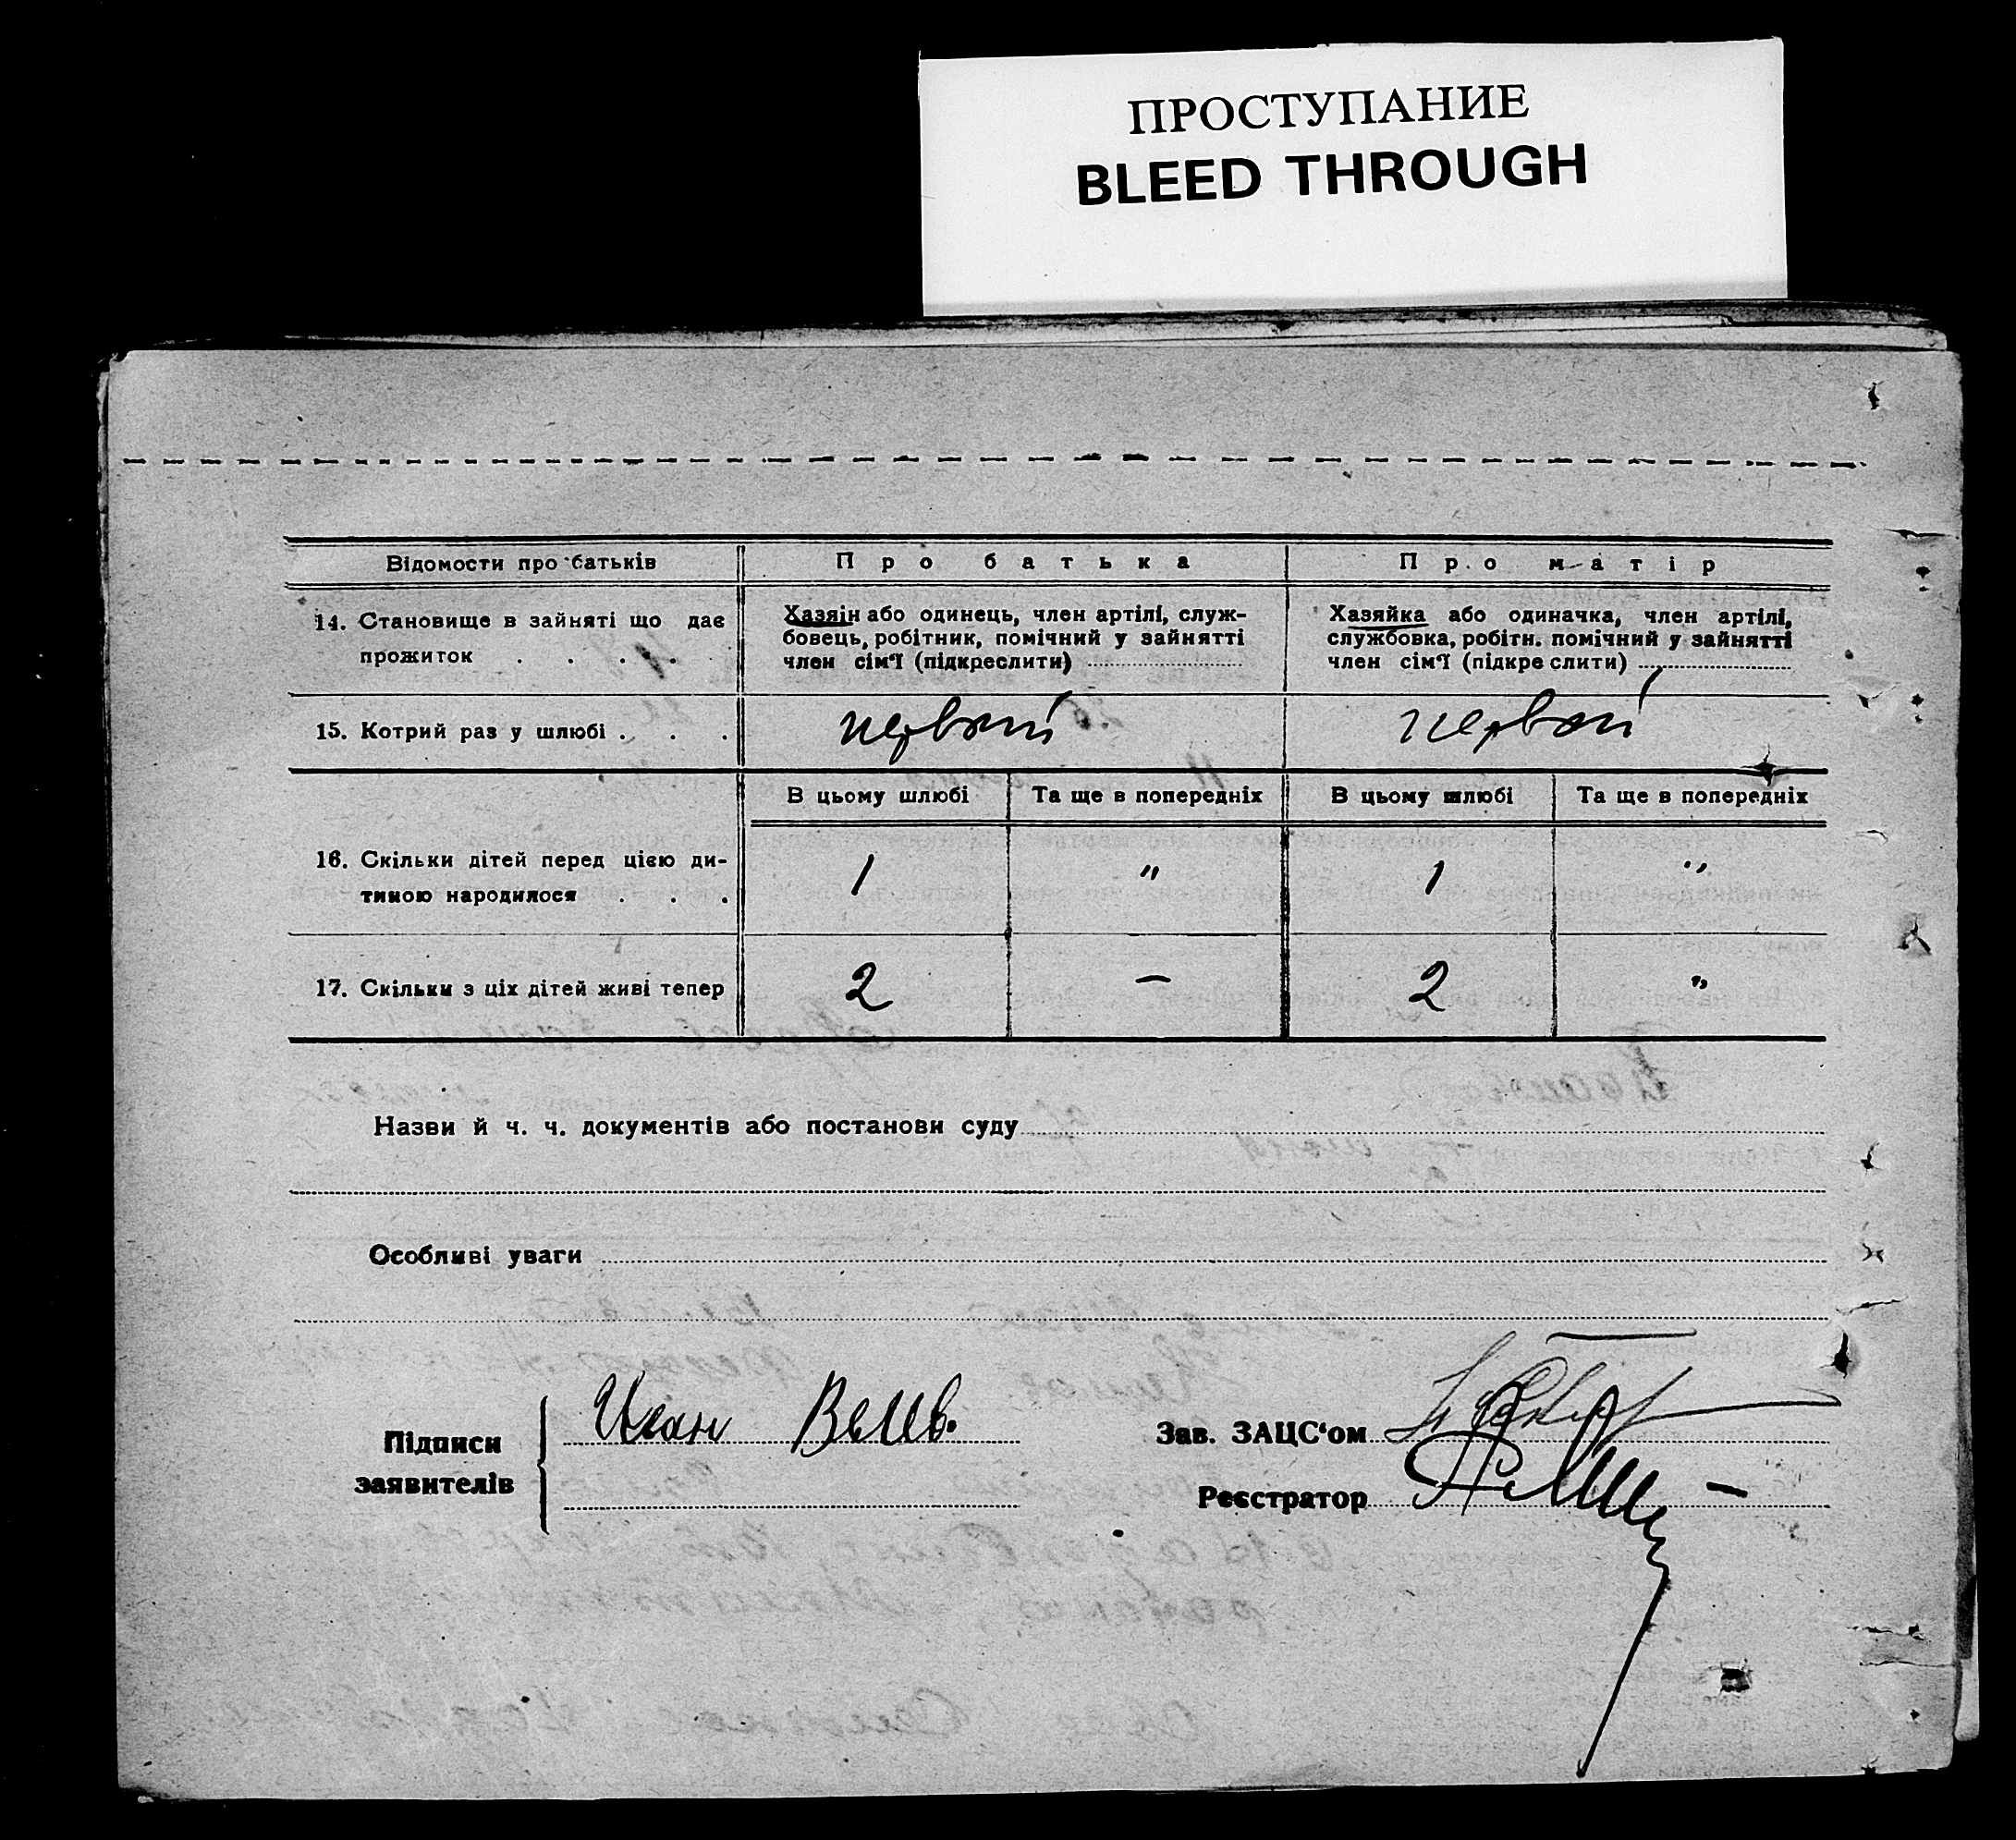 ПРОСТУПАНИЕ
BLEED THROUGH
Відомости про батьків
Про батька
Про матір
14. Становище в зайняті що дає
прожиток . . . .
Хазяін або одинець, член артілі, служ-
бовець, робітник, помічний у зайнятті
член сім'ї (підкреслити)
Хазяйка або одиначка, член артілі,
службовка, робітн. помічний у зайнятті
член сім'ї (підкреслити)
15. Котрий раз у шлюбі . . .
первый
первый
В цьому шлюбі
Та ще в попередніх
В цьому шлюбі
Та ще в попередніх
16. Скільки дітей перед цією ди-
тиною народилося . . .
1 " 1 "
17. Скільки з ціх дітей живі тепер
2 — 2 "
Назви й ч. ч. документів або постанови суду
Особливі уваги
Підписи
заявителів
Зав. ЗАЦС'ом
Реєстратор